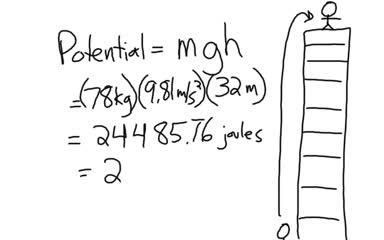 Potential = mgh
=(78kg)(9.81m/s²)(32m)
= 24485.76 joules
= 2